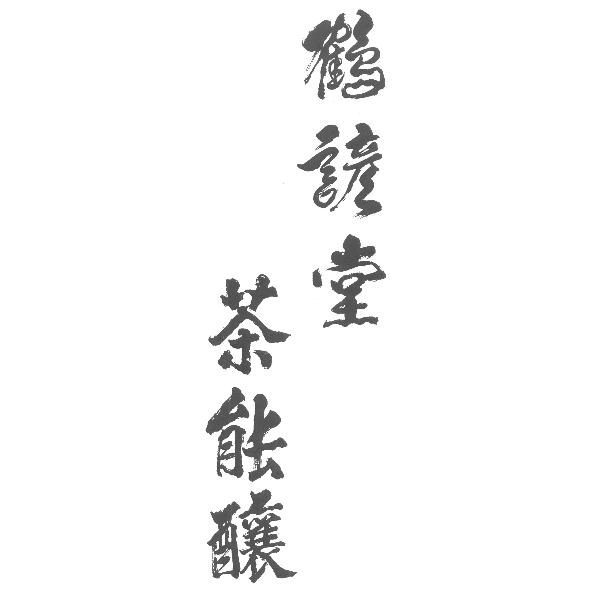 鶴諺堂
茶能釀